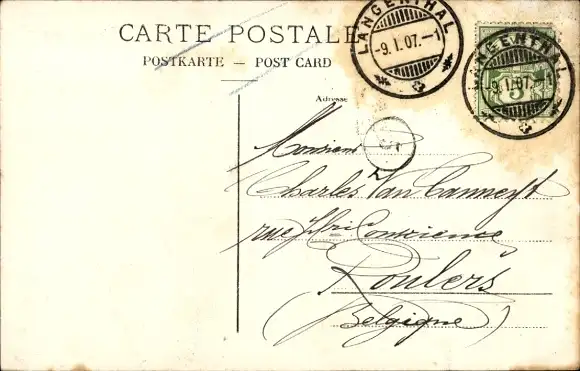 CARTE POSTALE
POSTKARTE — POST CARD
LANGENTHAL
-9.I.07.-1
LANGENTHAL
-9.I.07.-1
5
Adresse
Monsieur
Charles Van Canneyt
rue Hri Conscience
Roulers
(Belgique)